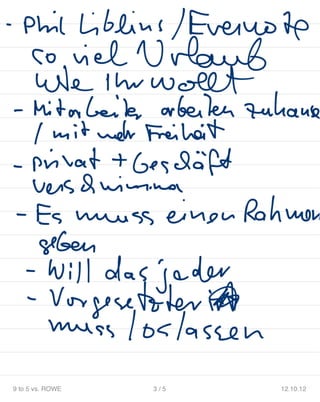 - Phil Libling / Evernote
so viel Urlaub
wie Ihr wollt
- Mitarbeiter arbeiten zuhause
/ mit mehr Freiheit
- privat + Geschäft
verschwimmen
- Es muss einen Rahmen
geben
- Will das jeder
- Vorgesetzter
muss loslassen
9 to 5 vs. ROWE
3 / 5
12.10.12